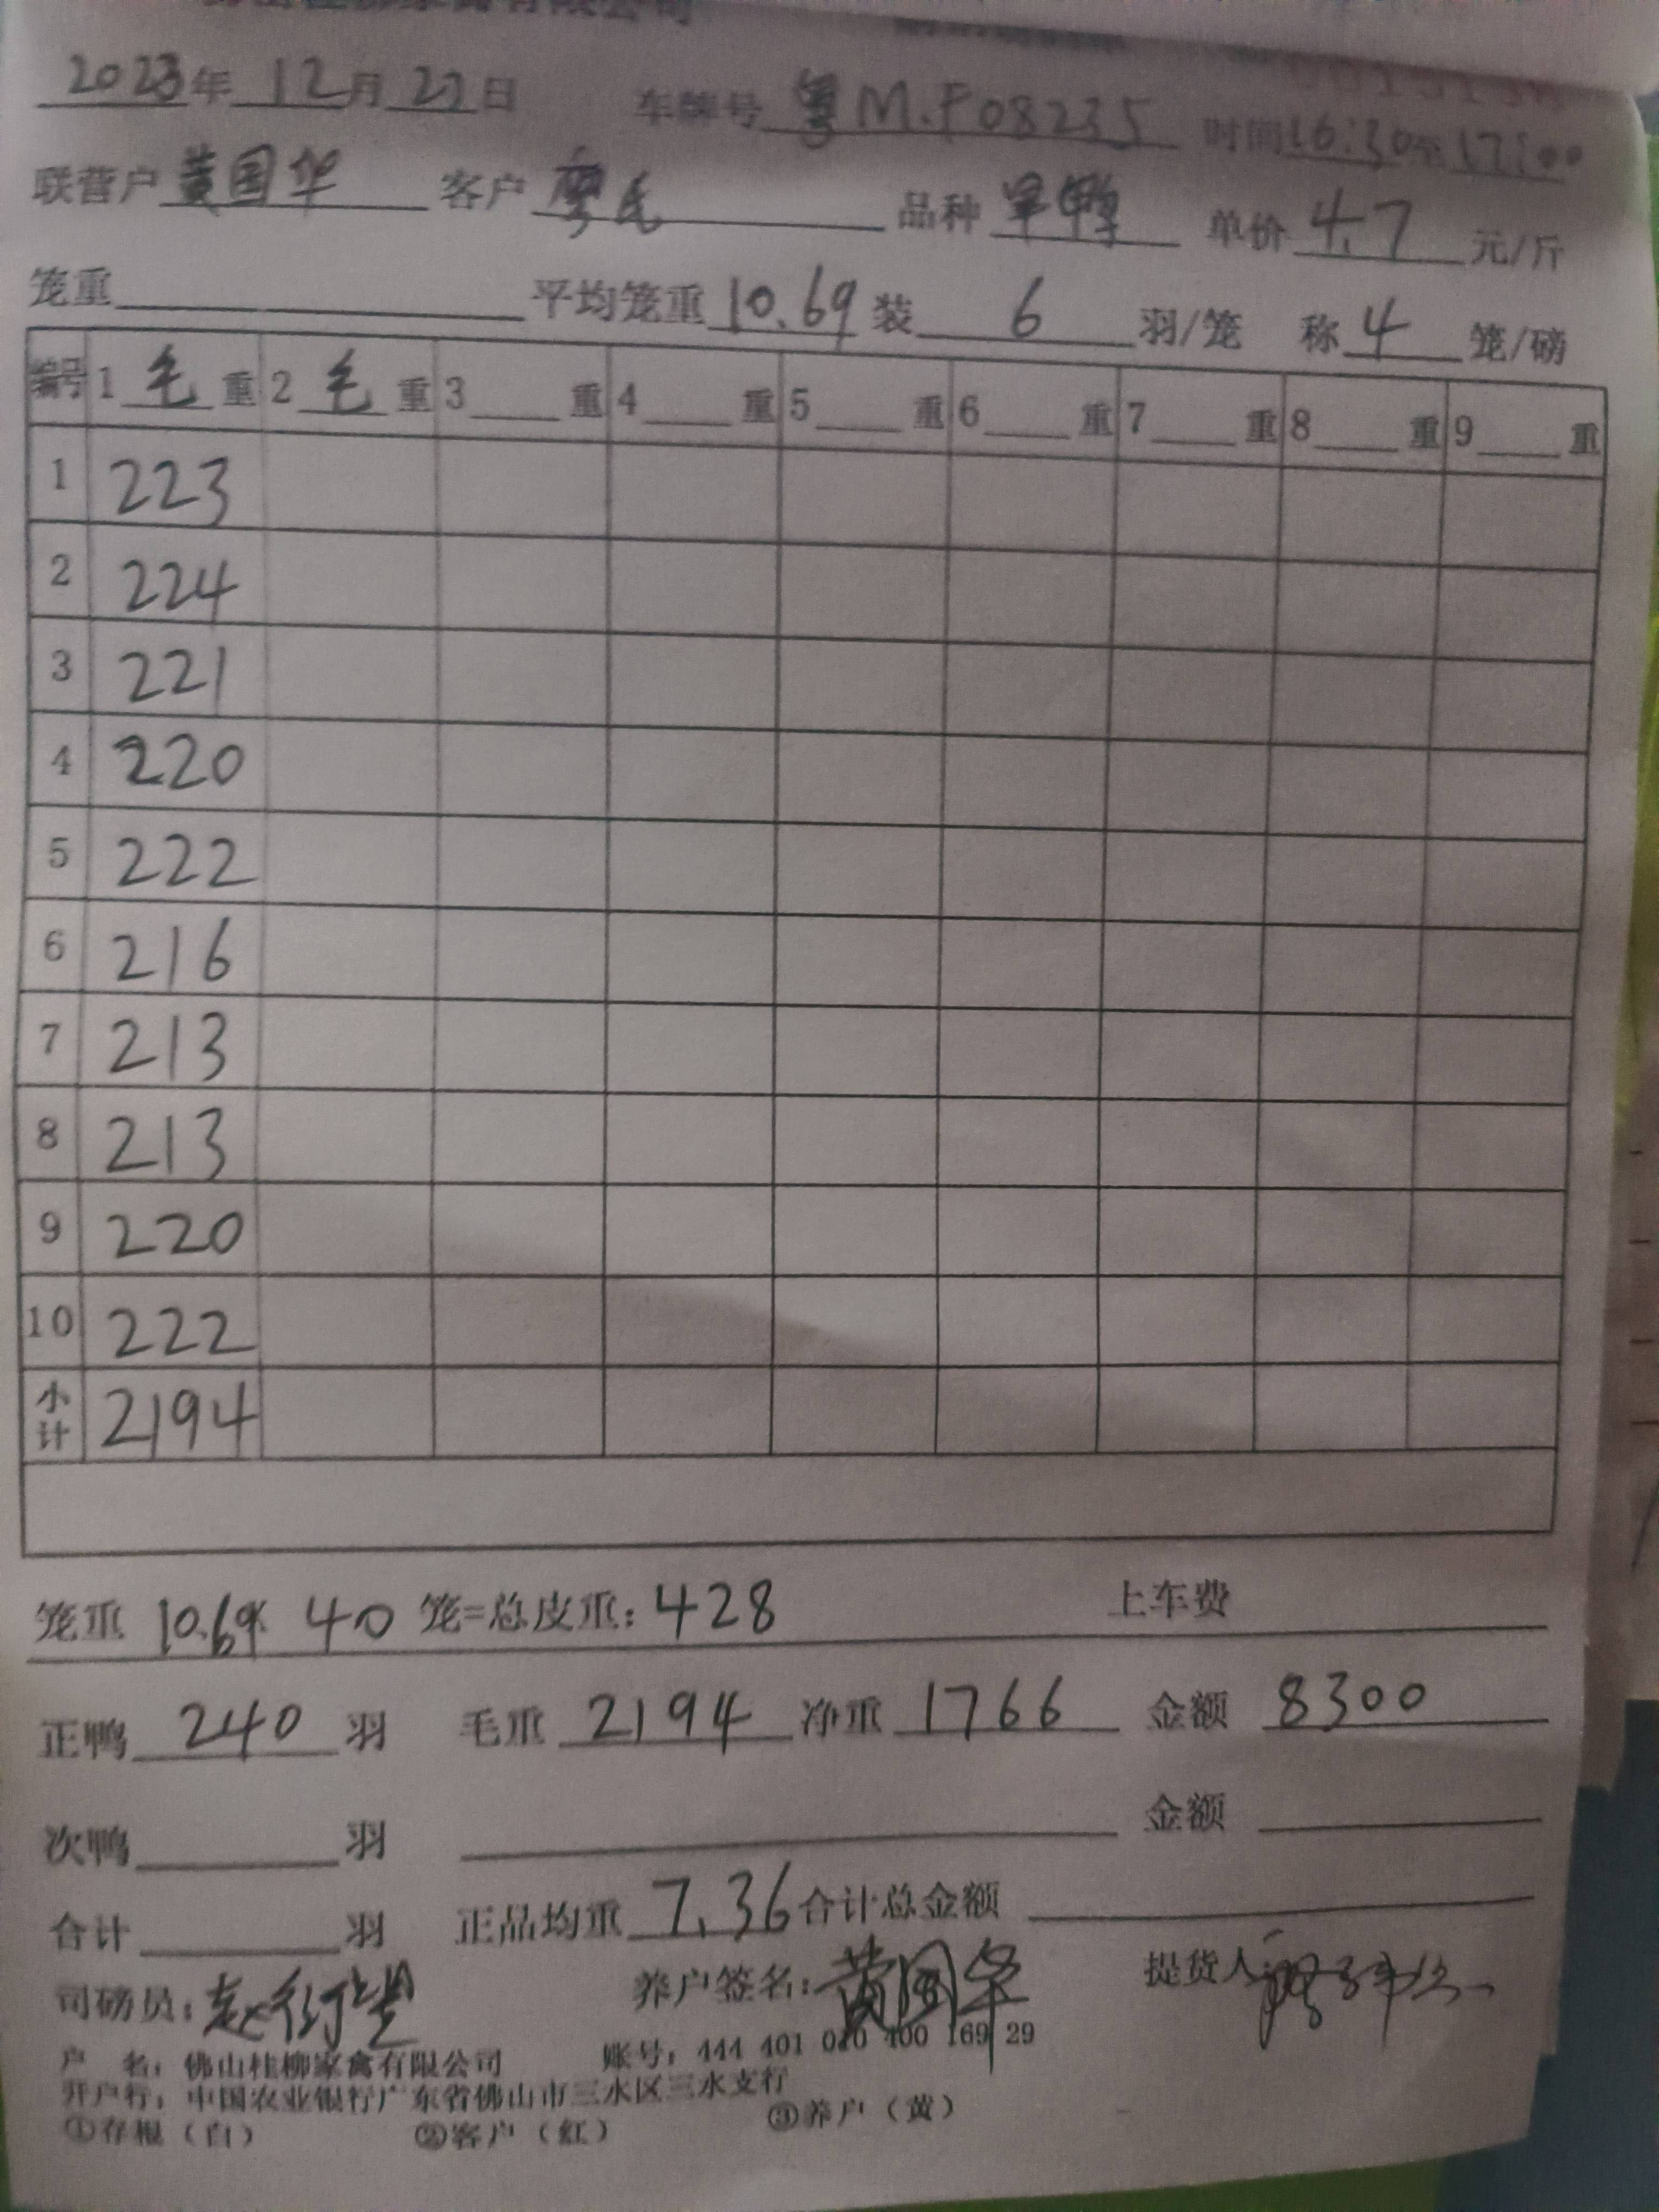 佛山桂柳家禽有限公司
2023年12月27日 车牌号 粤M.F08235 时间16:30至17:00
联营户 黄国华 客户 廖氏 品种 旱鸭 单价 4.7 元/斤
笼重 平均笼重 10.69 装 6 羽/笼 称 4 笼/磅
编号 1 毛 重 2 毛 重 3 重 4 重 5 重 6 重 7 重 8 重 9 重
1 223
2 224
3 221
4 220
5 222
6 216
7 213
8 213
9 220
10 222
小计 2194
笼重 10.69× 40 笼=总皮重: 428 上车费
正鸭 240 羽 毛重 2194 净重 1766 金额 8300
次鸭 羽 金额
合计 羽 正品均重 7.36 合计总金额
司磅员: 养户签名: 黄国华 提货人:
户 名: 佛山桂柳家禽有限公司 账号: 444 401 010 400 169 29
开户行: 中国农业银行广东省佛山市三水区三水支行
①存根（白） ②客户（红） ③养户（黄）